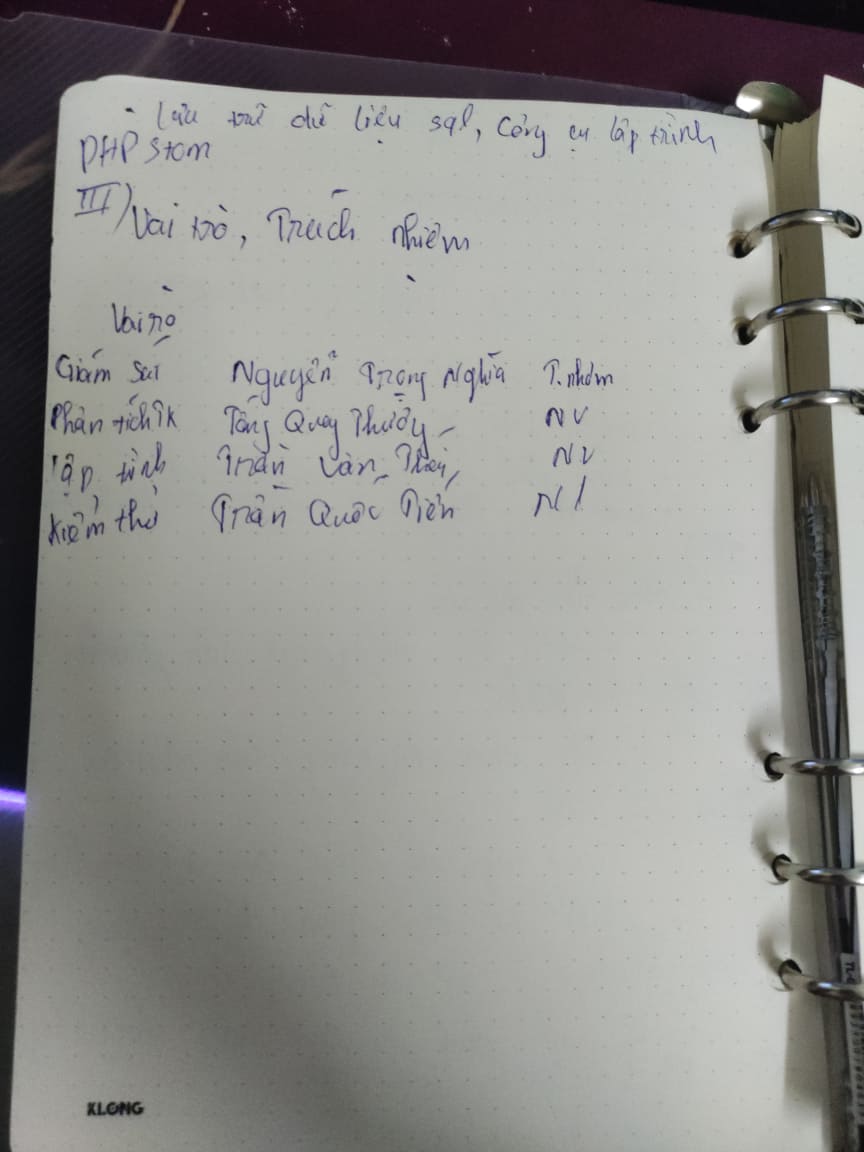 - Lưu trữ dữ liệu sql, Công cụ lập trình
PHP Stom
III) Vai trò, Trách nhiệm
Vai trò
Giám sát Nguyễn Trọng Nghĩa T.nhóm
Phân tích TK Tống Quang NV
Lập trình Trần Văn NV
Kiểm thử Trần Quốc Tiến NV
KLONG